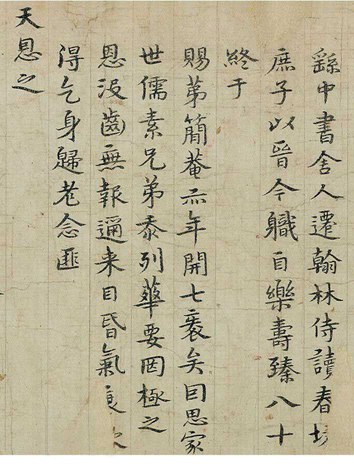 繇中書舍人遷翰林侍讀春坊
庶子以晉今職自樂壽臻八十
終于
賜第簡菴亦年開七袠矣因思家
世儒素兄弟忝列華要罔極之
恩沒齒無報邇来目昏氣
得乞身歸老念匪
天恩之